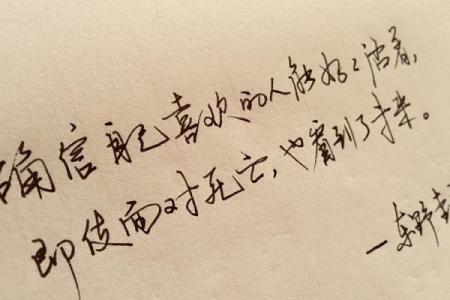 确信自己喜欢的人能好好活着,
即使面对死亡,也看到了未来。
—东野圭